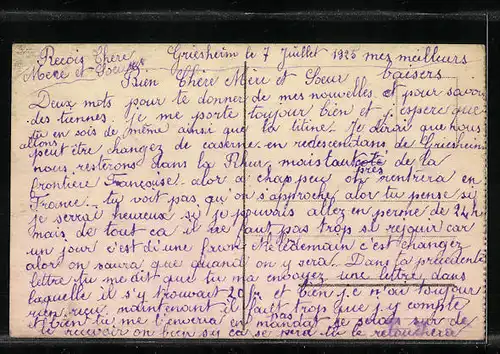 Reçois Chère Griesheim le 7 Juillet 1925 mes meilleurs
Mère et Soeur baisers
Bien Chère Mère et Soeur
Deux mots pour te donner de mes nouvelles et pour savoir
des tiennes. je me porte toujour bien et j'espère que
tu en sois de même ainsi que la titine. Je dirai que nous
allons peut être changez de caserne en redescendant de Griesheim
nous resterons dans la Rhur, mais tout coté de la
frontière Française. alor a chap peu on rentrera en
près
France. tu voit pas qu'on s'approche, alor tu pense si
je serai heureux si je pouvais allez en perme de 24h
mais de tout ca il ne faut pas trop se rejouir car
un jour c'est d'une facon et le lendemain c'est changez
alor on saura que quand on y sera. Dans ta précédente
lettre tu me dit que tu m'a envoyez une lettre, dans
laquelle il s'y trouvait 20 fr et bien je n'ai toujour
rien reçu maintenant il faut trop que j'y compte
pas
et bien tu me l'enverra en mandat je serai sur de
le recevoir on bien sy ca se perd tu le retouchera